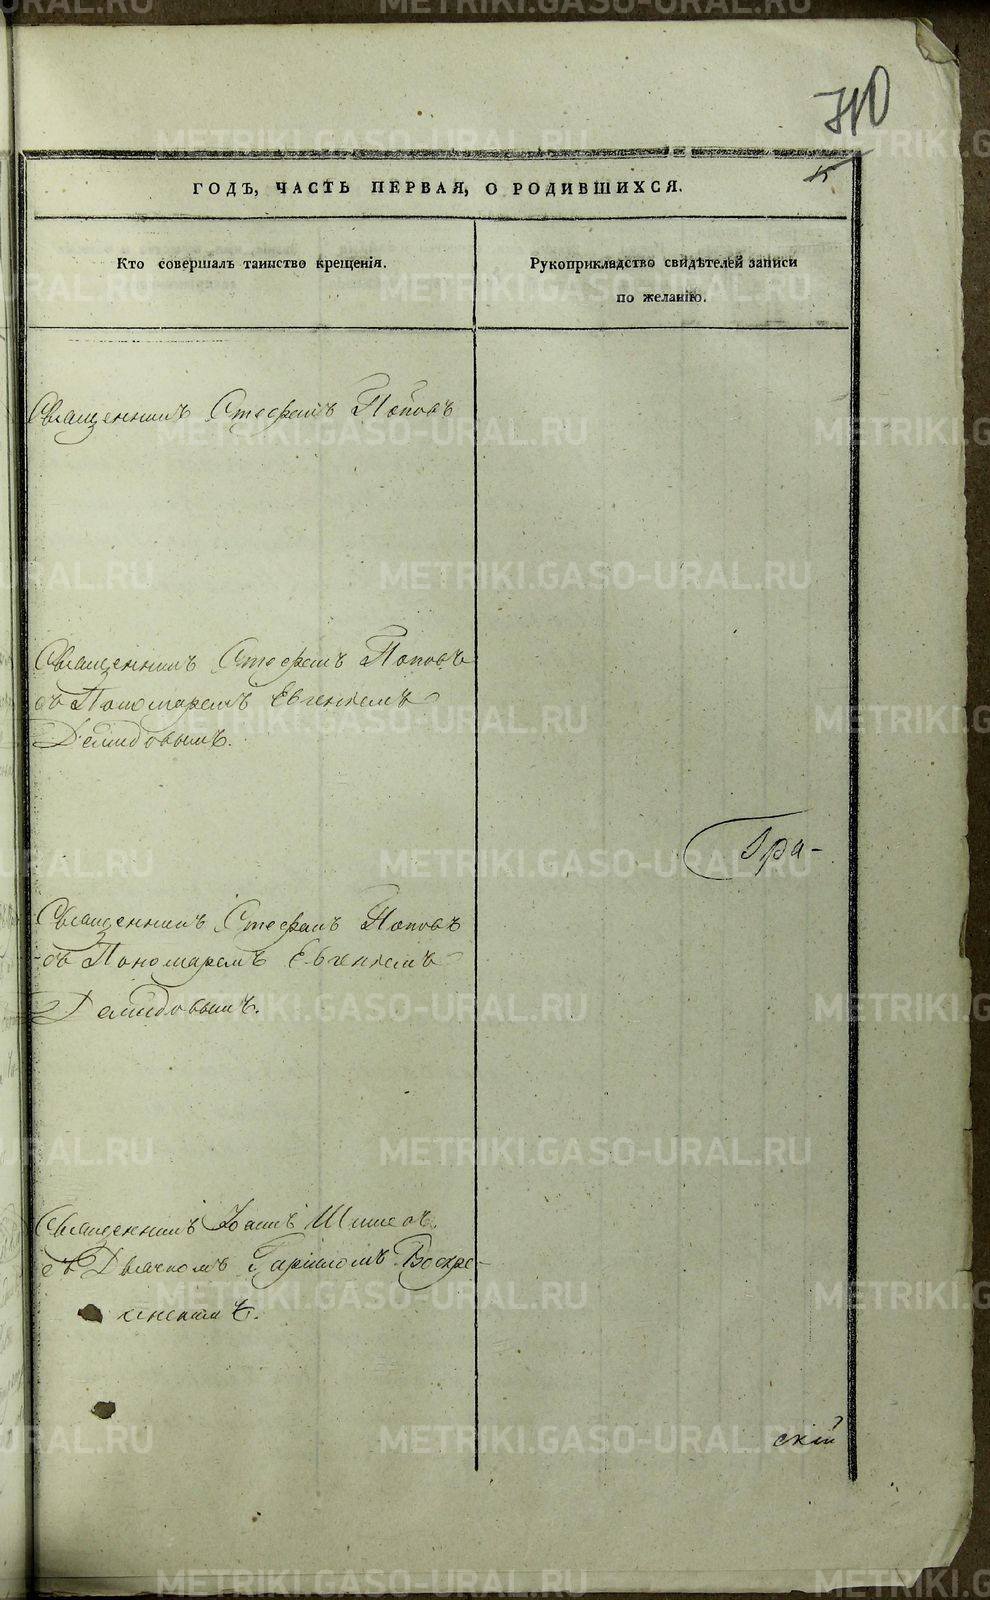 710
ГОДЪ, ЧАСТЬ ПЕРВАЯ, О РОДИВШИХСЯ.
Кто совершалъ таинство крещенія.
Рукоприкладство свидѣтелей записи
по желанію.
Священникъ Стефанъ Поповъ
Священникъ Стефанъ Поповъ
съ Пономаремъ Евгеніемъ
Демидовымъ.
Гра-
Священникъ Стефанъ Поповъ
съ Пономаремъ Евгеніемъ
Демидовымъ.
Священникъ Іоаннъ Шишовъ
съ Дьячкомъ Гаріиломъ Воскре-
сенскимъ.
скій
METRIKI.GASO-URAL.RU